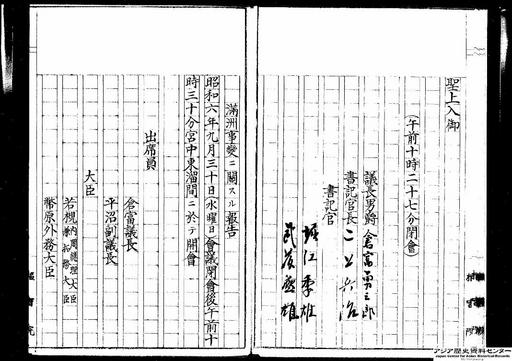 聖上入御
（午前十時二十七分閉會）
議長男爵 倉富勇三郎
書記官長 二上兵治
書記官
堀江季雄
武藤盛雄
滿洲事變ニ關スル報告
昭和六年九月三十日（水曜日）會議閉會後午前十
時三十分宮中東溜間ニ於テ開會
出席員
倉富議長
平沼副議長
大臣
若槻內閣總理大臣兼拓務大臣
幣原外務大臣
アジア歴史資料センター
Japan Center for Asian Historical Records